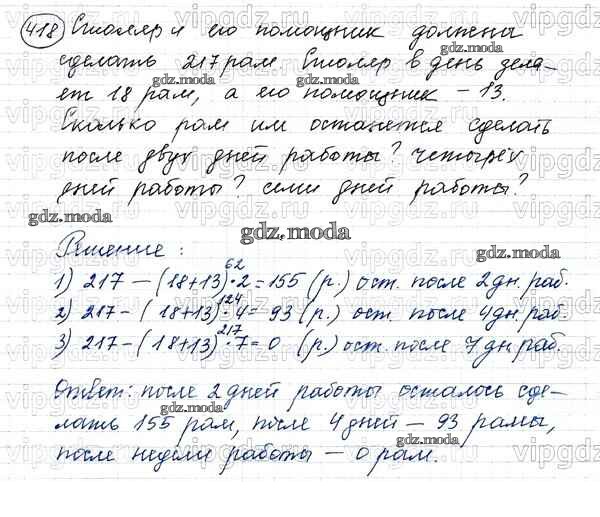 418 Столяр и его помощник должны
сделать 217 рам. Столяр в день дела-
ет 18 рам, а его помощник – 13.
Сколько рам им останется сделать
после двух дней работы? четырёх
дней работы? семи дней работы?
Решение:
62
1) 217 – (18+13)·2=155 (р.) ост. после 2 дн. раб.
124
2) 217 – (18+13)·4= 93 (р.) ост. после 4 дн. раб.
217
3) 217 – (18+13)·7=0 (р.) ост. после 7 дн раб.
Ответ: после 2 дней работы осталось сде-
лать 155 рам, после 4 дней – 93 рамы,
после недели работы – 0 рам.
gdz.moda
vipgdz.ru